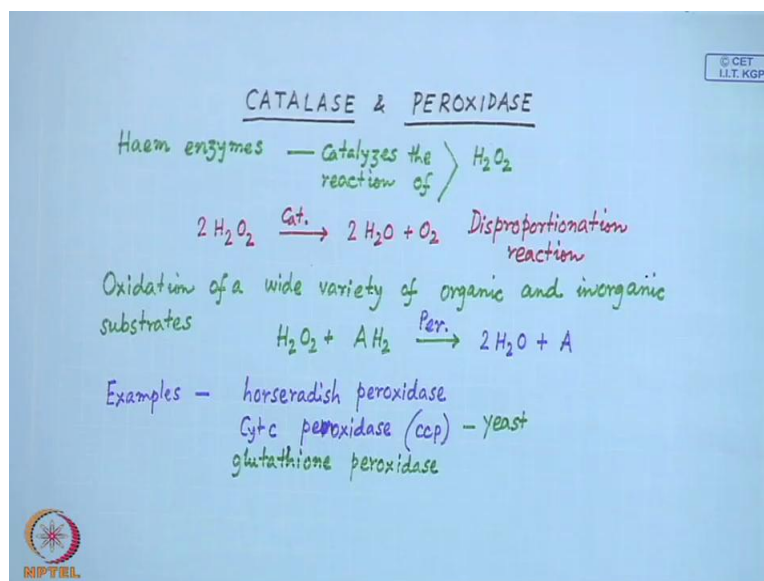 © CET
I.I.T. KGP
CATALASE & PEROXIDASE
Haem enzymes — Catalyzes the reaction of } H₂O₂
2 H₂O₂ Cat. → 2 H₂O + O₂ Disproportionation reaction
Oxidation of a wide variety of organic and inorganic
substrates
H₂O₂ + AH₂ Per. → 2 H₂O + A
Examples — horseradish peroxidase
Cyt c peroxidase (ccp) — yeast
glutathione peroxidase
NPTEL